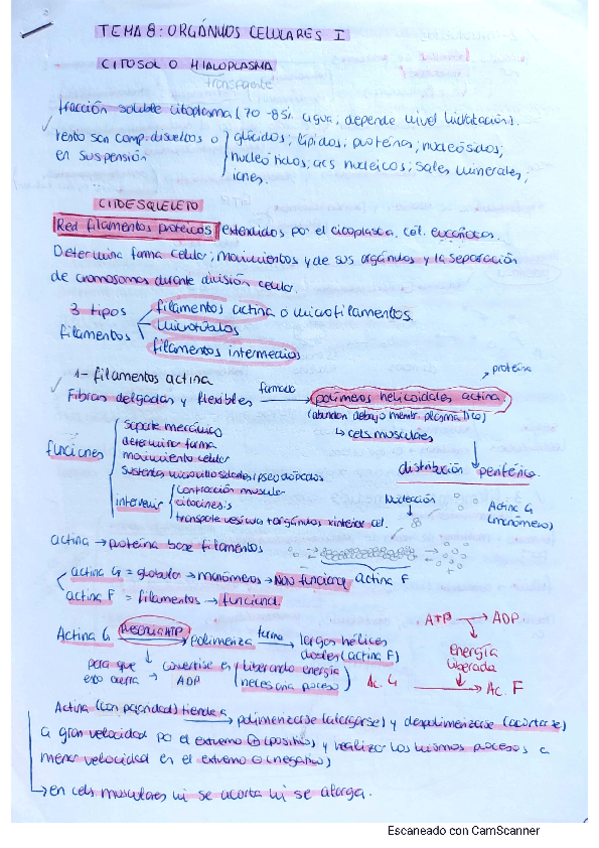 TEMA 8: ORGÁNULOS CELULARES I
CITOSOL O HIALOPLASMA
transparente
fracción soluble citoplasma (70-85% agua; depende nivel hidratación).
resto son comp. disueltos o
en suspensión
glúcidos; lípidos; proteínas; nucleósidos;
nucleótidos; acs nucleicos; sales minerales;
iones.
CITOESQUELETO
Red filamentos proteicos extendidos por el citoplasma cél. eucariotas.
Determina forma celular; movimientos y de sus orgánulos y la separación
de cromosomas durante división celular.
3 tipos
filamentos
filamentos actina o microfilamentos
microtúbulos
filamentos intermedios
1- filamentos actina
proteína
Fibras delgadas y flexibles formado polímeros helicoidales actina
(abundan debajo membr. plasmática)
→ cels musculares
funciones
soporte mecánico
determina forma
movimiento celular
sustenta microvellosidades/pseudópodos
intervenir
contracción muscular
citocinesis
transporte vesículas + orgánulos x interior cel.
distribución periférica.
Nucleación
Actina G
(monómero)
actina → proteína base filamentos
actina F
actina G = globular → monómeros → No funcional
actina F = filamentos → funcional
Actina G necesita ATP polimeriza forma largas hélices
dobles (actina F)
para que
esto ocurra → convertirse en
ADP
liberando energía
necesaria proceso
ATP → ADP
Energía
liberada
Ac. G → Ac. F
Actina (con polaridad) tiende a polimerizarse (alargarse) y despolimerizarse (acortarse)
a gran velocidad por el extremo ⊕ (positivo) y realiza los mismos procesos a
menor velocidad en el extremo ⊖ (negativo)
→ en cels musculares ni se acorta ni se alarga.
Escaneado con CamScanner